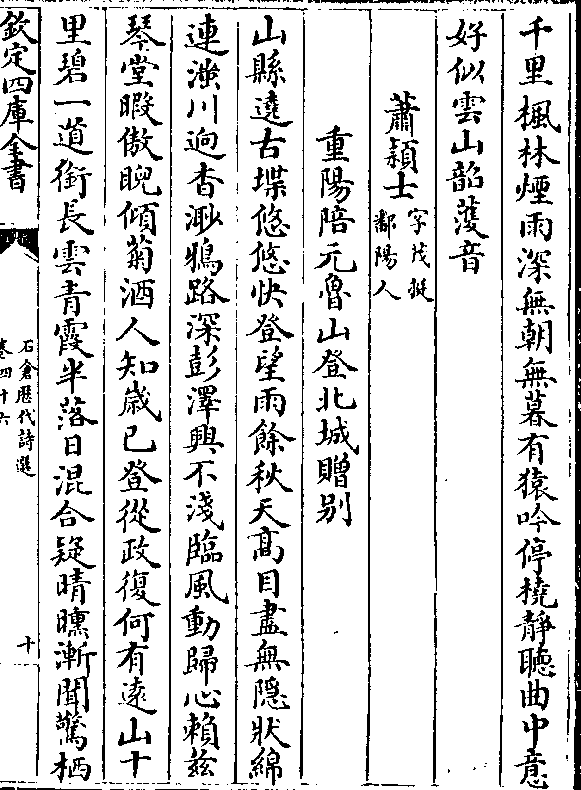 千里楓林煙雨深無朝無暮有猿吟停橈靜聽曲中意
好似雲山韶濩音
蕭穎士字茂挺鄱陽人
重陽陪元魯山登北城贈别
山縣遶古堞悠悠快登望雨餘秋天髙目盡無隠狀綿
連滍川逈杳渺鵶路深彭澤興不淺臨風動歸心賴兹
琴堂暇傲睨傾菊酒人知歳已登從政復何有逺山十
里碧一道銜長雲青霞半落日混合疑晴曛漸聞驚栖
欽定四庫全書
石倉歴代詩選
卷四十六
十